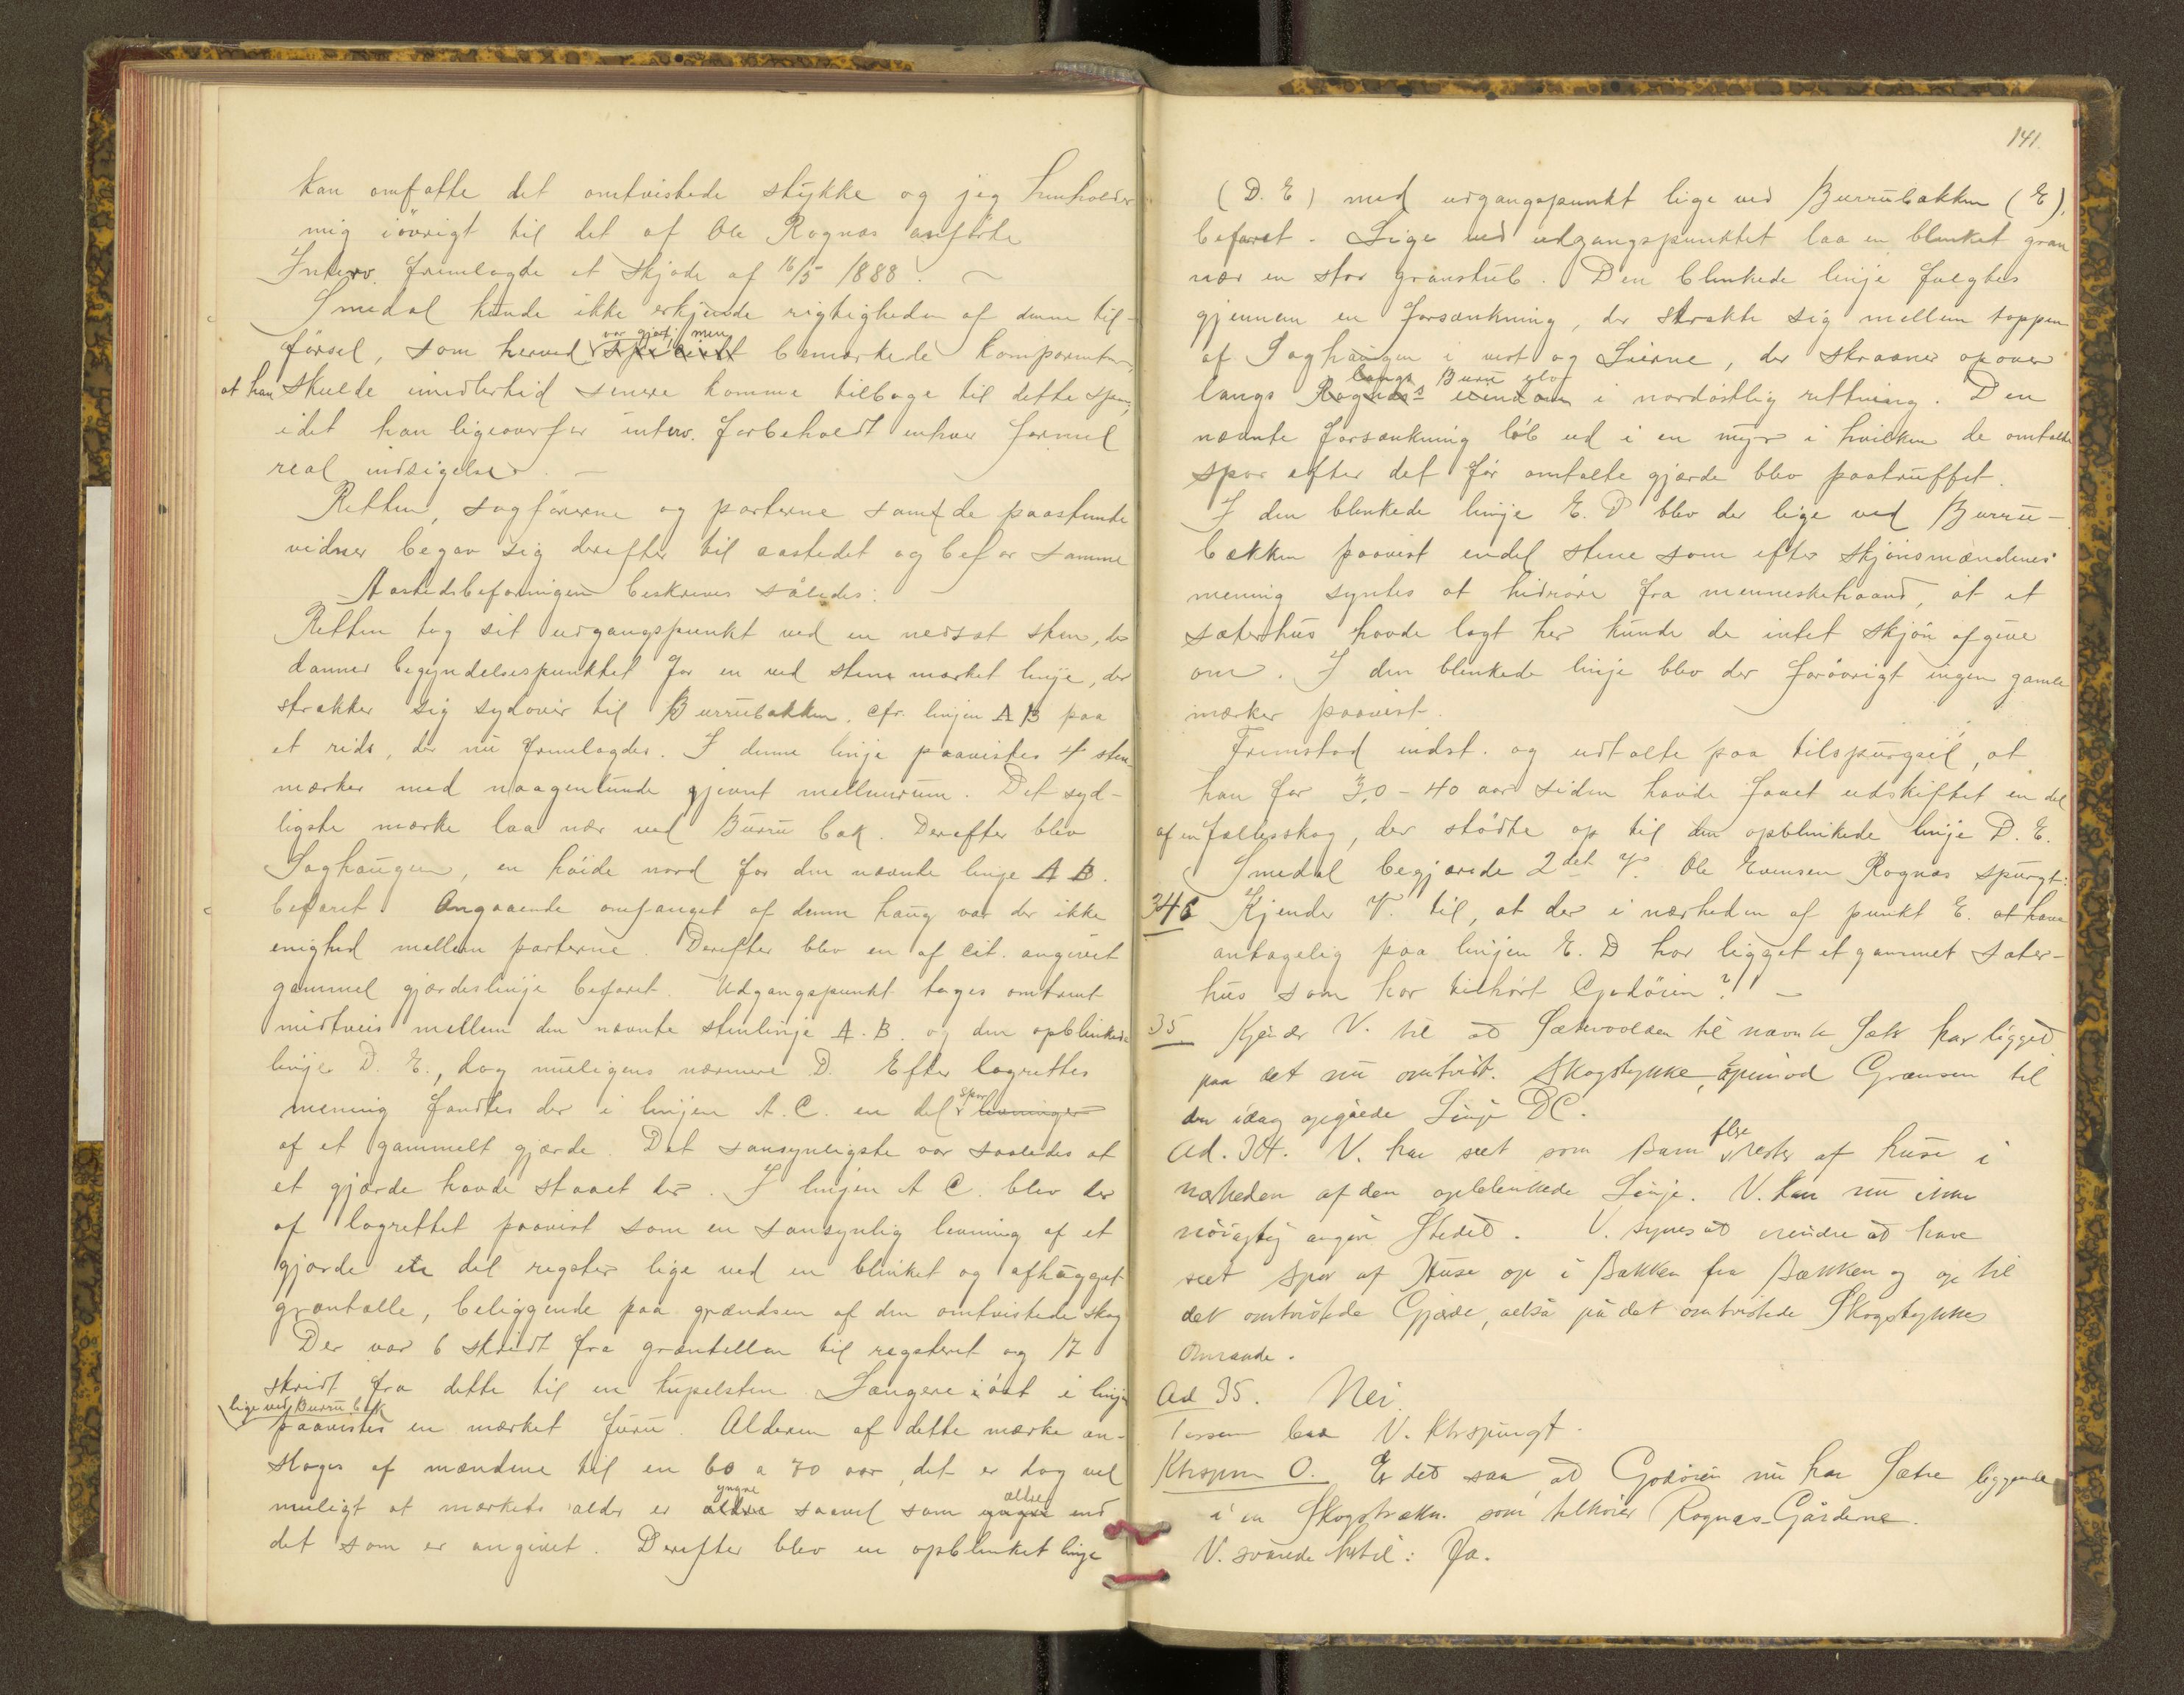 kan omfatte det omtvistede stykke og jeg henholder
mig iøvrigt til det af Ole Rognæs anførte
Interv. fremlagde et skjøde af 16/5 1888.
Smedal kunde ikke erkjende rigtigheden af denne til-
var gjort; men
førsel, som herved bemærkede komparenten,
at han skulde imidlertid senere komme tilbage til dette spm,
idet han ligeoverfor interv. forbeholdt enhver formel
real indsigelse. —
Retten, sagførerne og parterne samt de paastevnte
vidner begav sig derefter til aastedet og befor samme
Aastedsbefaringen beskrives således:
Retten tog sit udgangspunkt ved en nedsat sten, der
danner begyndelsespunktet for en ved stene mærket linje, der
strækker sig sydover til Burrubækken. cfr. linjen A B paa
et rids, der nu fremlagdes. I denne linje paavistes 4 sten-
mærker med naagenlunde gjevnt mellemrum. Det syd-
ligste mærke laa nær ved Burru bæk. Derefter blev
Saghaugen, en høide nord for den nævnte linje A B.
befaret. Angaaende omfanget af denne haug var der ikke
enighed mellem parterne. Derefter blev en af cit. angivet
gammel gjærdeslinje befaret. Udgangspunkt toges omtrent
midtveis mellem den nævnte stenlinje A. B. og den opblinkede
linje D. E., dog muligens nærmere D. Efter lagrettes
spor
mening fandtes der i linjen A. C. en del levninger
af et gammelt gjærde. Det sansynligste var saaledes at
et gjærde havde staaet der. I linjen A C. blev der
af lagrettet paavist som en sansynlig levning af et
gjærde en del rygster lige ved en blinket og afhugget
grantølle, beliggende paa grændsen af den omtvistede skog
Der var 6 skridt fra grantøllen til regsteret og 12
skridt fra dette til en Længere i øst i linjen
lige ved Burru bæk
paavistes en mærket furu. Alderen af dette mærke an-
sloges af mændene til en 60 a 70 aar, det er dog vel
yngre ældre
muligt at mærkets alder er ældre saavel som yngre end
det som er angivet. Derefter blev en opblinket linje
141.
(D. E) med udgangspunkt lige ved Burrubækken (E),
befaret. Lige ved udgangspunktet laa en blinket gran
nær en stor granstub. Den blinkede linje fulgtes
gjennem en forsænkning, der strakte sig mellem toppen
af Saghaugen i vest og Lierne, der skraaner opover
langs Buru elv
langs Rognæs's eiendom i nordøstlig rettning. Den
nævnte forsænkning løb ud i en myr i hvilken de omtalte
spor efter det før omtalte gjærde blev paatruffet.
I den blinkede linje E. D blev der lige ved Burru-
bækken paavist endel stene som efter skjønsmændenes
mening syntes at hidrøre fra menneskehaand, at et
sæterhus havde lagt her kunde de intet skjøn afgive
om. I den blinkede linje blev der forøvrigt ingen gamle
mærker paavist.
Fremstod indst. og udtalte paa tilspurgsel, at
han for 30 - 40 aar siden havde faaet udskiftet en del
af en fællesskog, der stødte op til den opblinkede linje D. E.
Smedal begjærede 2det V. Ole Evensen Rognæs spurgt:
34 Kjender V. til, at der i nærheden af punkt E. at have
antagelig paa linjen E. D har ligget et gammel sæter-
hus som har tilhørt Godøien? —
35 Kjender V. til at Sætervolden til nævnte Sæter har ligget
paa det nu omtvist. Skogstykke, Grænsen til
den idag opgåede Linje DC.
flere
Ad. 34. V. har seet som Barn rester af huse i
nærheden af den opblinkede Linje. V. kan nu ikke
nøiagtig angive Stedet. V. synes at erindre at have
seet spor af Huse op i Bakken fra Bækken og op til
det omtvistede Gjærde, altså på det omtvistede Skogstykkes
Område.
Ad 35. Nei.
V. ktrspurgt.
Ktrspm O. Er det saa, at Godøien nu har Sætre liggende
i en Skogstrækn. som tilhører Rognæs-Gårderne.
V. svarede hertil: Ja.